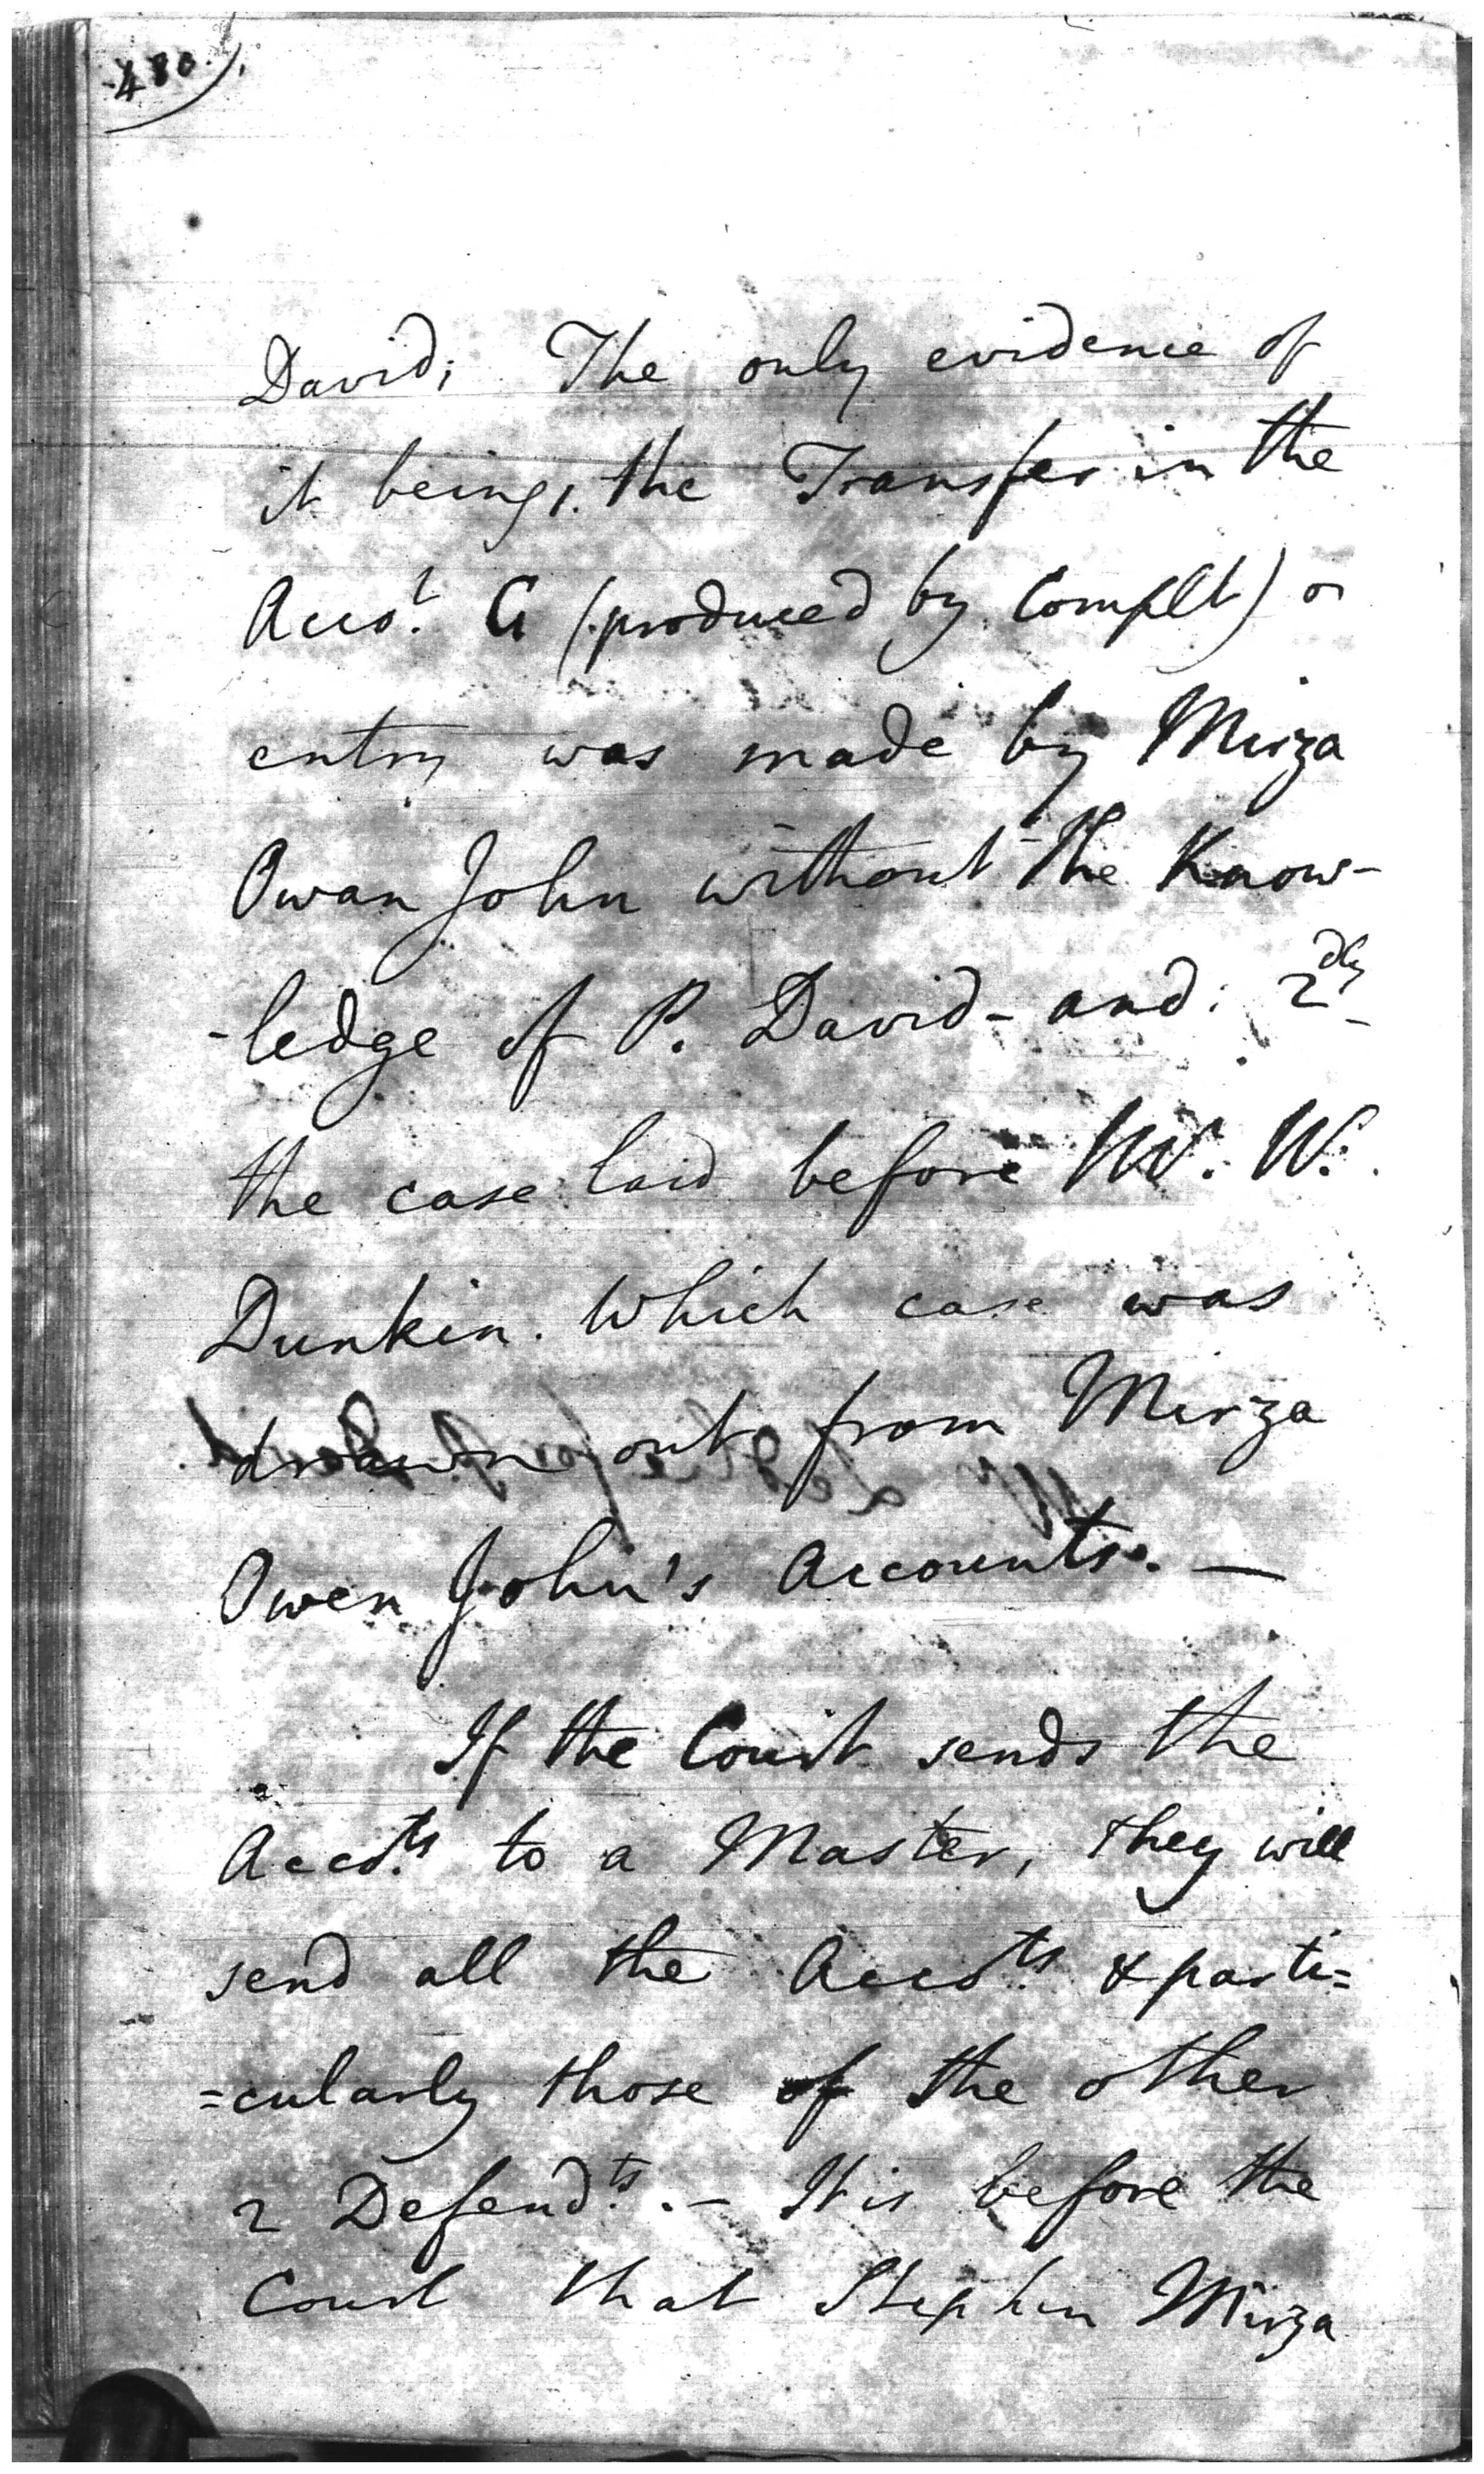 480.
David; The only evidence of
it being, the Transfer in the
Acco.t G (produced by Complt) or
entry was made by Mirza
Owan John without the Know-
-ledge of P. David - and: 2dly
the case laid before Mr. W.
Dunkin. Which case was
drawn out from Mirza
Owen John's Accounts. —
If the Court sends the
Acco.ts to a Master, they will
send all the Acco.ts & parti=
=cularly those of the other
2 Defend.ts. - It is before the
Court that Stephen Mirza